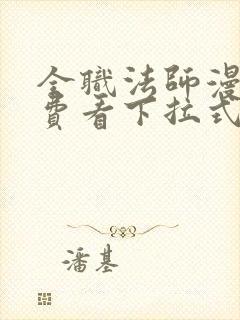 全職法師漫
費看下拉式
潘基